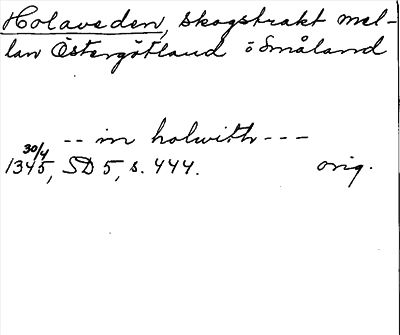 Holaveden, skogstrakt mel-
lan Östergötland o Småland
-- in holwith ---
30/4
1345, SD 5, s. 444. orig.